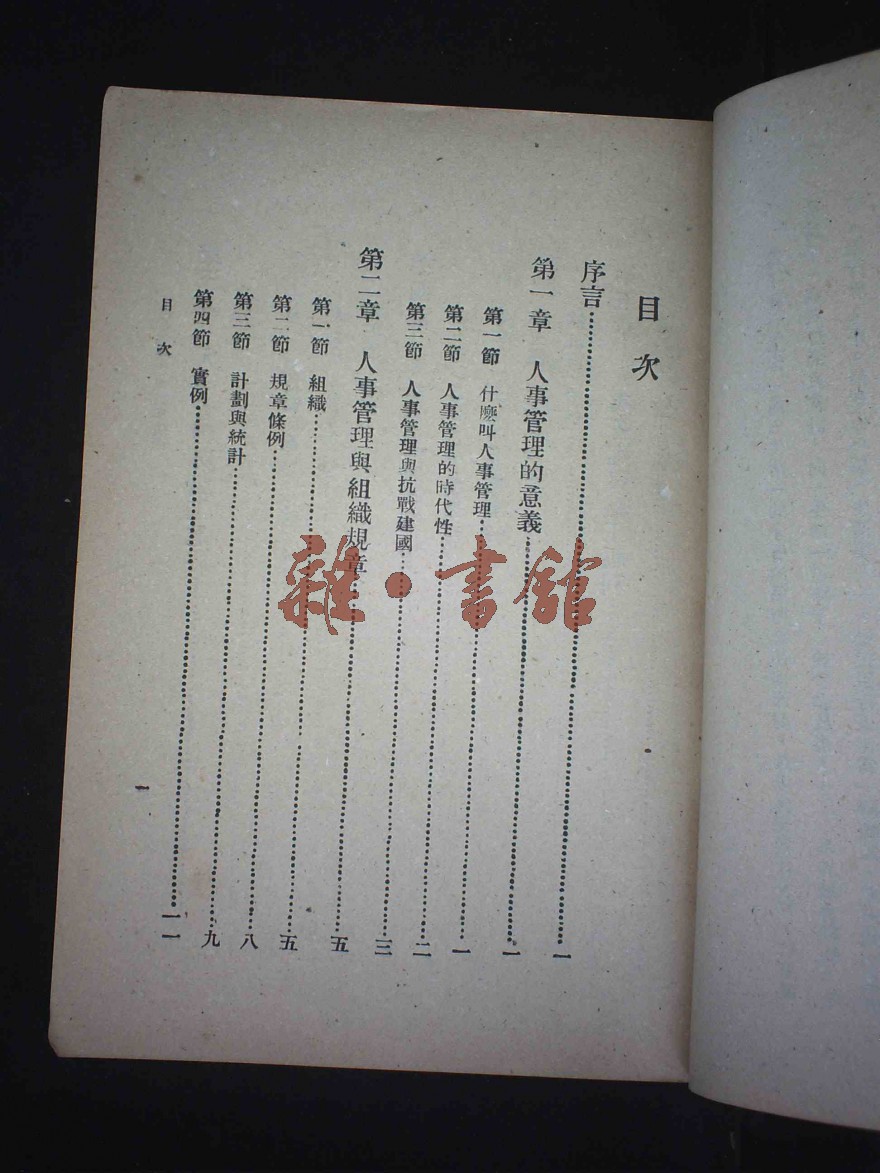 目次
序言……一
第一章 人事管理的意義……一
第一節 什麽叫人事管理……一
第二節 人事管理的時代性……二
第三節 人事管理與抗戰建國……三
第二章 人事管理與組織規章……五
第一節 組織……五
第二節 規章條例……八
第三節 計劃與統計……九
第四節 實例……一一
目次 一
雜·書館